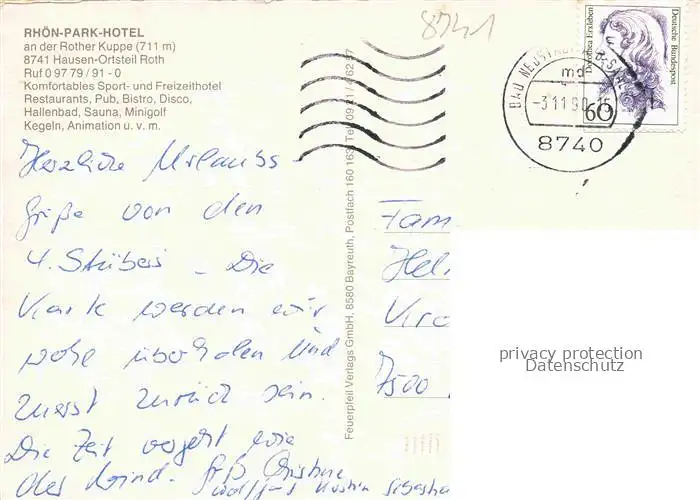 8741
RHÖN-PARK-HOTEL
an der Rother Kuppe (711 m)
8741 Hausen-Ortsteil Roth
Ruf 0 97 79 / 91 - 0
Komfortables Sport- und Freizeithotel
Restaurants, Pub, Bistro, Disco,
Hallenbad, Sauna, Minigolf
Kegeln, Animation u. v. m.
Herzliche Urlaubs-
grüße von den
4. Stübers - Die
Karte werden wir
wohl überholen und
zuerst zurück sein.
Die Zeit vergeht wie
der Wind. Gruß Christine
Feuerpfeil Verlags GmbH, 8580 Bayreuth, Postfach 160 163, Tel. 09 21 / 4 62 87
Deutsche Bundespost
Dorothea Erxleben
60
BAD NEUSTADT
md
-3.11.90.-15
8740
Fam
Hel
7500
privacy protection
Datenschutz